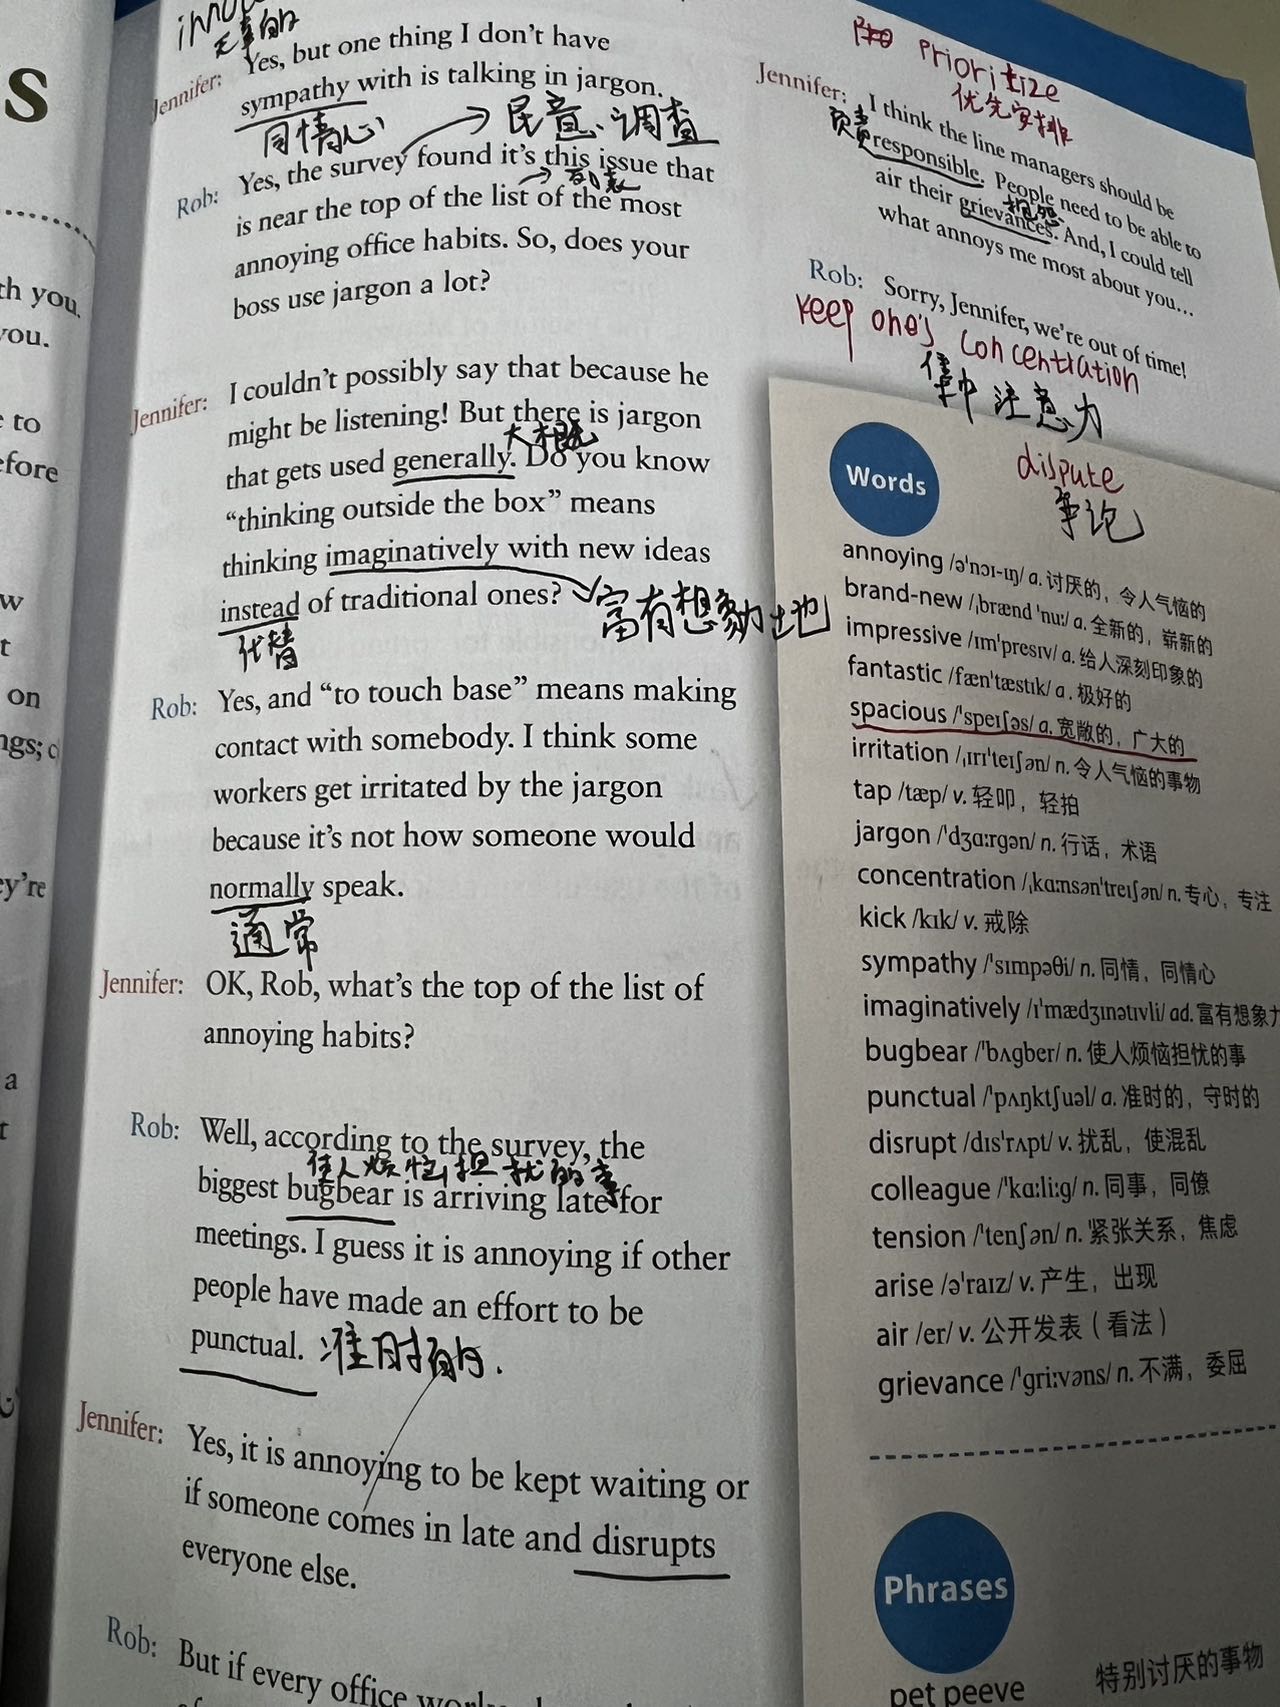 s
th you.
you.
e to
efore
w
t
on
ngs;
ey're
a
t
Jennifer: Yes, but one thing I don't have
sympathy with is talking in jargon.
同情心 民意、调查
Rob: Yes, the survey found it's this issue that
列表
is near the top of the list of the most
annoying office habits. So, does your
boss use jargon a lot?
Jennifer: I couldn't possibly say that because he
might be listening! But there is jargon
大概
that gets used generally. Do you know
"thinking outside the box" means
thinking imaginatively with new ideas
instead of traditional ones? 富有想象力地
代替
Rob: Yes, and "to touch base" means making
contact with somebody. I think some
workers get irritated by the jargon
because it's not how someone would
normally speak.
通常
Jennifer: OK, Rob, what's the top of the list of
annoying habits?
Rob: Well, according to the survey, the
使人烦恼担忧的事
biggest bugbear is arriving late for
meetings. I guess it is annoying if other
people have made an effort to be
punctual. 准时的.
Jennifer: Yes, it is annoying to be kept waiting or
if someone comes in late and disrupts
everyone else.
Rob: But if every office
Prioritize
优先安排
Jennifer: I think the line managers should be
负责
responsible. People need to be able to
抱怨
air their grievances. And, I could tell
what annoys me most about you...
Rob: Sorry, Jennifer, we're out of time!
keep one's concentration
集中注意力
Words
dispute
争论
annoying /ə'nɔɪ-ɪŋ/ a. 讨厌的，令人气恼的
brand-new /ˌbrænd 'nuː/ a. 全新的，崭新的
impressive /ɪm'presɪv/ a. 给人深刻印象的
fantastic /fæn'tæstɪk/ a. 极好的
spacious /'speɪʃəs/ a. 宽敞的，广大的
irritation /ˌɪrɪ'teɪʃən/ n. 令人气恼的事物
tap /tæp/ v. 轻叩，轻拍
jargon /'dʒɑːrgən/ n. 行话，术语
concentration /ˌkɑːnsən'treɪʃən/ n. 专心，专注
kick /kɪk/ v. 戒除
sympathy /'sɪmpəθi/ n. 同情，同情心
imaginatively /ɪ'mædʒɪnətɪvli/ ad. 富有想象力
bugbear /'bʌgber/ n. 使人烦恼担忧的事
punctual /'pʌŋktʃuəl/ a. 准时的，守时的
disrupt /dɪs'rʌpt/ v. 扰乱，使混乱
colleague /'kɑːliːg/ n. 同事，同僚
tension /'tenʃən/ n. 紧张关系，焦虑
arise /ə'raɪz/ v. 产生，出现
air /er/ v. 公开发表（看法）
grievance /'griːvəns/ n. 不满，委屈
Phrases
pet peeve 特别讨厌的事物